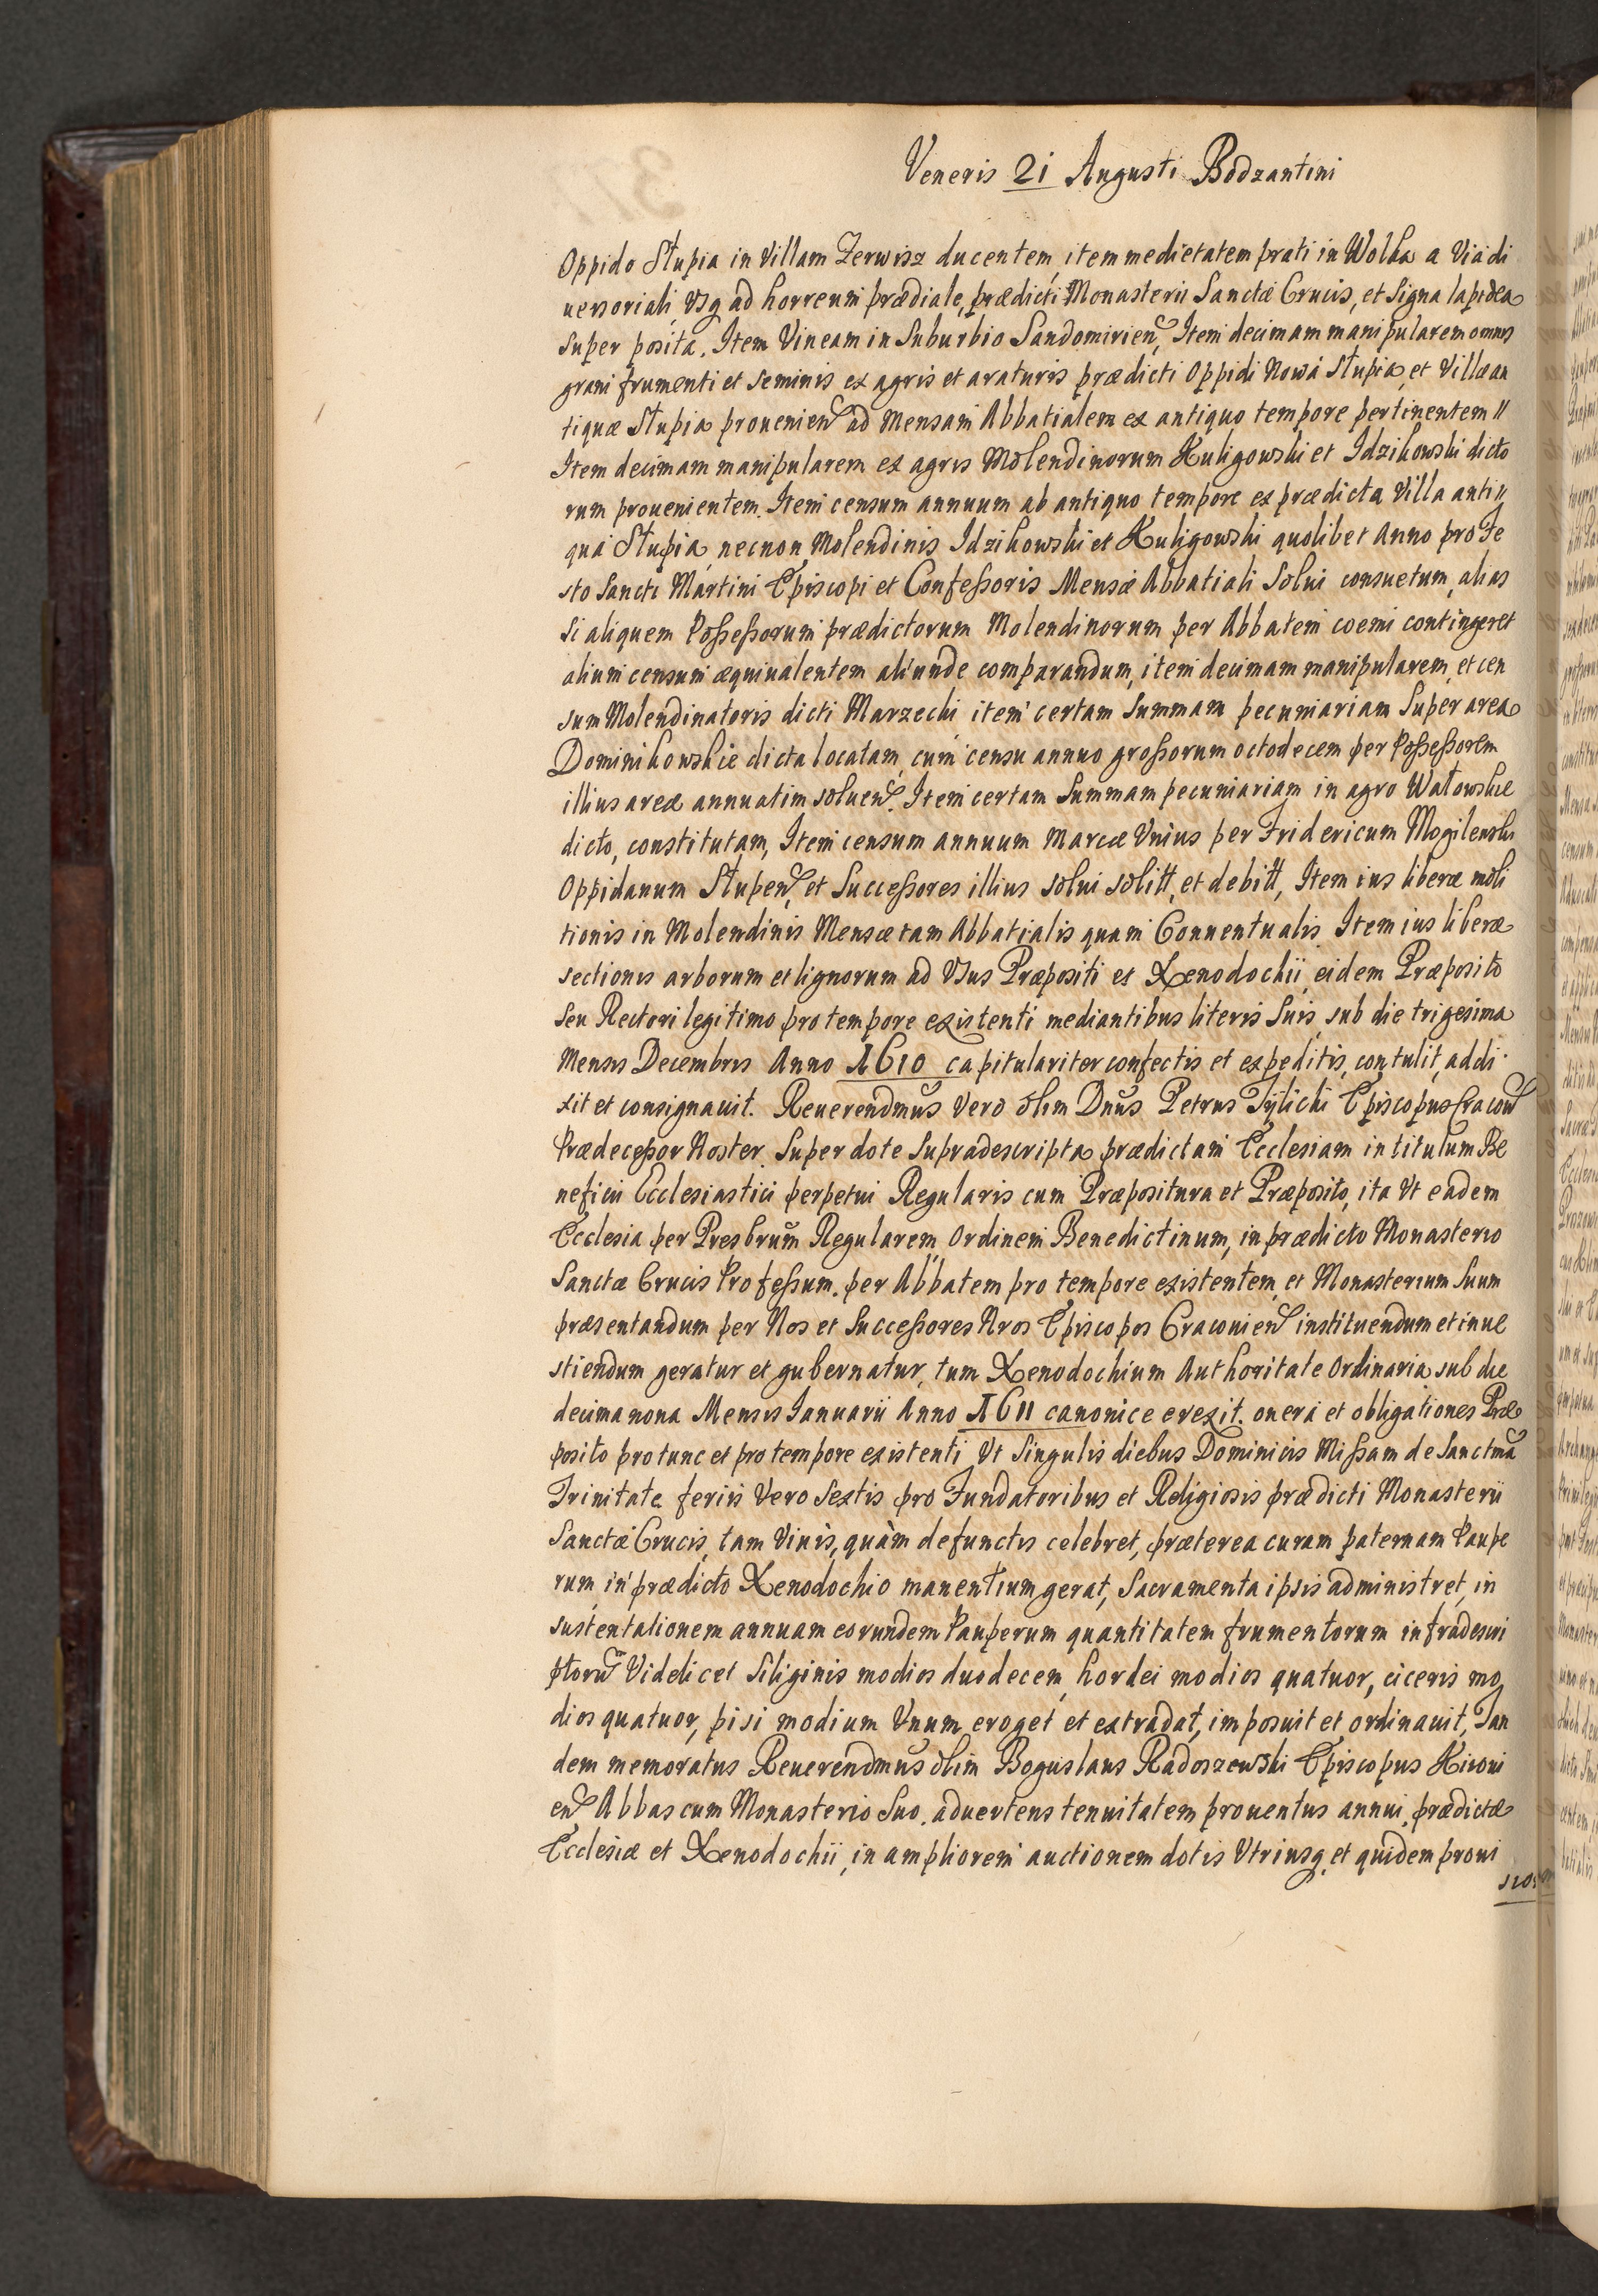 Veneris 21 Augusti Bodzantini
Oppido Słupia in Villam Zerwisz ducentem, item medietatem prati in Wolka a Via di
uersoriali, Vsq ad horreum prædiale, prædicti Monasterii Sanctæ Crucis, et Signa lapidea
super posita, Item Vineam in Suburbio Sandomirien, Item decimam manipularem omnis
grani frumenti et seminis ex agris et araturis prædicti Oppidi Nowa Słupia, et Villæ an
tiquæ Słupia prouenien ad Mensam Abbatialem ex antiquo tempore pertinentem //
Item decimam manipularem ex agris Molendinorum Kuligowski et Idzikowski dicto
rum prouenientem. Item censum annuum ab antiquo tempore ex prædicta Villa anti //
qua Słupia, necnon Molendinis Idzikowski et Kuligowski quolibet Anno pro Fe
sto Sancti Martini Episcopi et Confeßoris Mensæ Abbatiali Solui consuetum, alias
Si aliquem Poßeßorum prædictorum Molendinorum per Abbatem coemi contingeret
alium censum æquiualentem aliunde comparandum, item decimam manipularem, et cen
sum Molendinatoris dicti Marzecki item certam Summam pecuniariam Super area
Dominikowskie dicta locatam, cum censu annuo großorum octodecem per Poßeßorem
illius areæ annuatim soluen. Item certam Summam pecuniariam in agro Watowskie
dicto, constitutam, Item censum annuum Marcæ Vnius per Fridericum Mogilenski
Oppidanum Słupen, et Succeßores illius solui solitt, et debitt, Item ius liberæ moli
tionis in Molendinis Mensæ tam Abbatialis quam Conuentualis Item ius liberæ
sectionis arborum et lignorum ad Vsus Præpositi et Xenodochii, eidem Præposito
Seu Rectori legitimo pro tempore existenti mediantibus literis Suis, sub die trigesima
Mensis Decembris Anno 1610 capitulariter confectis et expeditis, contulit, addi
xit et consignauit. Reuerendmus vero olim Dnus Petrus Tylicki Episcopus Cracouien
Prædeceßor Noster Super dote Supradescripta prædictam Ecclesiam in titulum Be
neficii Ecclesiastici perpetui Regularis cum Præpositura et Præposito, ita Vt eadem
Ecclesia per Presbrum Regularem, Ordinem Benedictinum, in prædicto Monasterio
Sanctæ Crucis Profeßum, per Abbatem pro tempore existentem, et Monasterium Suum
præsentandum per Nos et Succeßores Nros Episcopos Cracouien instituendum et inue
stiendum geratur et gubernatur, tum Xenodochium Authoritate Ordinaria sub die
decima nona Mensis Ianuarii Anno 1611 canonice erexit. onera et obligationes Præ
posito pro tunc et pro tempore existenti Vt Singulis diebus Dominicis Mißam de Sanctma
Trinitate feriis vero Sextis pro Fundatoribus et Religiosis prædicti Monasterii
Sanctæ Crucis, tam Viuis, quàm defunctis celebret, præterea curam paternam Paupe
rum, in prædicto Xenodochio manentium gerat, Sacramenta ipsis administret, in
sustentationem annuam eorundem Pauperum quantitatem frumentorum infradescri
ptoru Videlicet Siliginis modios duodecem, hordei modios quatuor, ciceris mo
dios quatuor, pisi modium Vnum, eroget et extradat, imposuit et ordinauit, Tan
dem memoratus Reuerendmus olim Boguslaus Radoszewski Episcopus Kiioui
en Abbas cum Monasterio Suo aduertens tenuitatem prouentus annui, prædictæ
Ecclesiæ et Xenodochii, in ampliorem auctionem dotis Vtriusq, et quidem proui